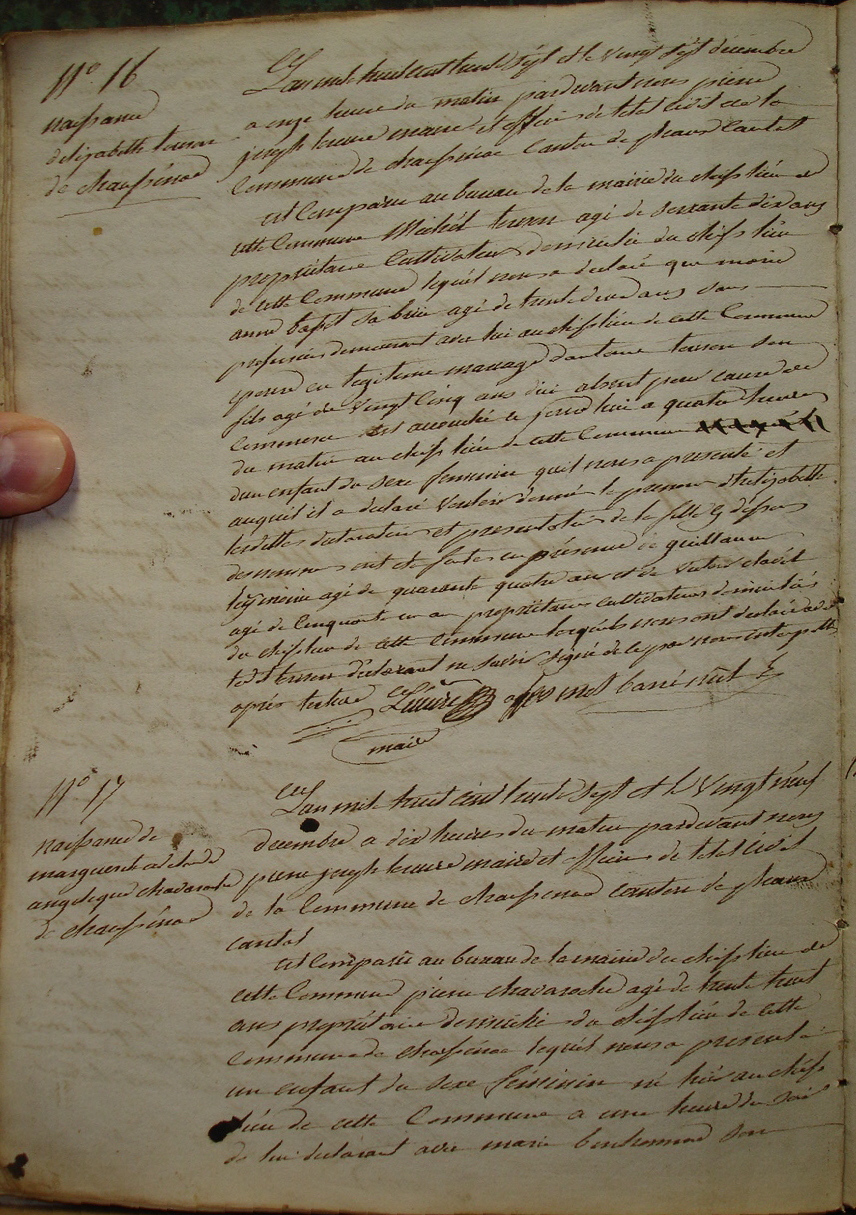 N° 16
naissance
d'elizabette terrou
de chaussenac
L'an mil huit cent trente sept et le vingt sept decembre
a onze heures du matin pardevant nous pierre
joseph maire et officier de l'etat civil de la
Commune de chaussenac canton de pleaux Cantal
est Comparu au bureau de la mairie du cheif lieu de
cette Commune Michel terrou agé de soixante dix ans
propriétaire Cultivateur domicilié du cheif lieu
de cette Commune lequel nous a declaré que marie
anne sa brue agé de trente deux ans sans
profession demeurant avec lui au cheif lieu de cette Commune
epouse en legitime mariage d'antoine terrou son
fils agé de vingt Cinq ans d'ici absent pour cause de
Commerce est accouchée ce jourd'hui a quatre heures
du matin au cheif lieu de cette Commune
d'un enfant du sexe feminin qu'il nous a presenté et
auquel il a declaré vouloir donner le prenom d'helizabette
lesdittes declaration et presentation de la fille cy dessus
denommée ont eté faites en présence de guillaume
agé de quarante quatre ans et de
agé de Cinquante un an propriétaires cultivateurs domiciliés
du cheif lieu de cette Commune lesquels nous ont declaré avec
ledit terrou declarant ne savoir signer de ce par nous interpellés
après lecture mot barré nul
maire
N° 17
naissance de
marguerite adelaide
angelique chavaroche
de chaussenac
L'an mil huit cent trente sept et le Vingt neuf
decembre a dix heures du matin pardevant nous
pierre joseph maire et officier de l'etat Civil
de la Commune de chaussenac canton de pleaux
cantal
est Comparu au bureau de la mairie du cheif lieu de
cette Commune pierre chavaroche agé de trente huit
ans propriétaire domicilié du cheif lieu de cette
Commune de chaussenac lequel nous a presenté
un enfant du sexe féminin né hier au cheif
lieu de cette Commune a une heure du soir
de lui declarant avec marie bonhomme son